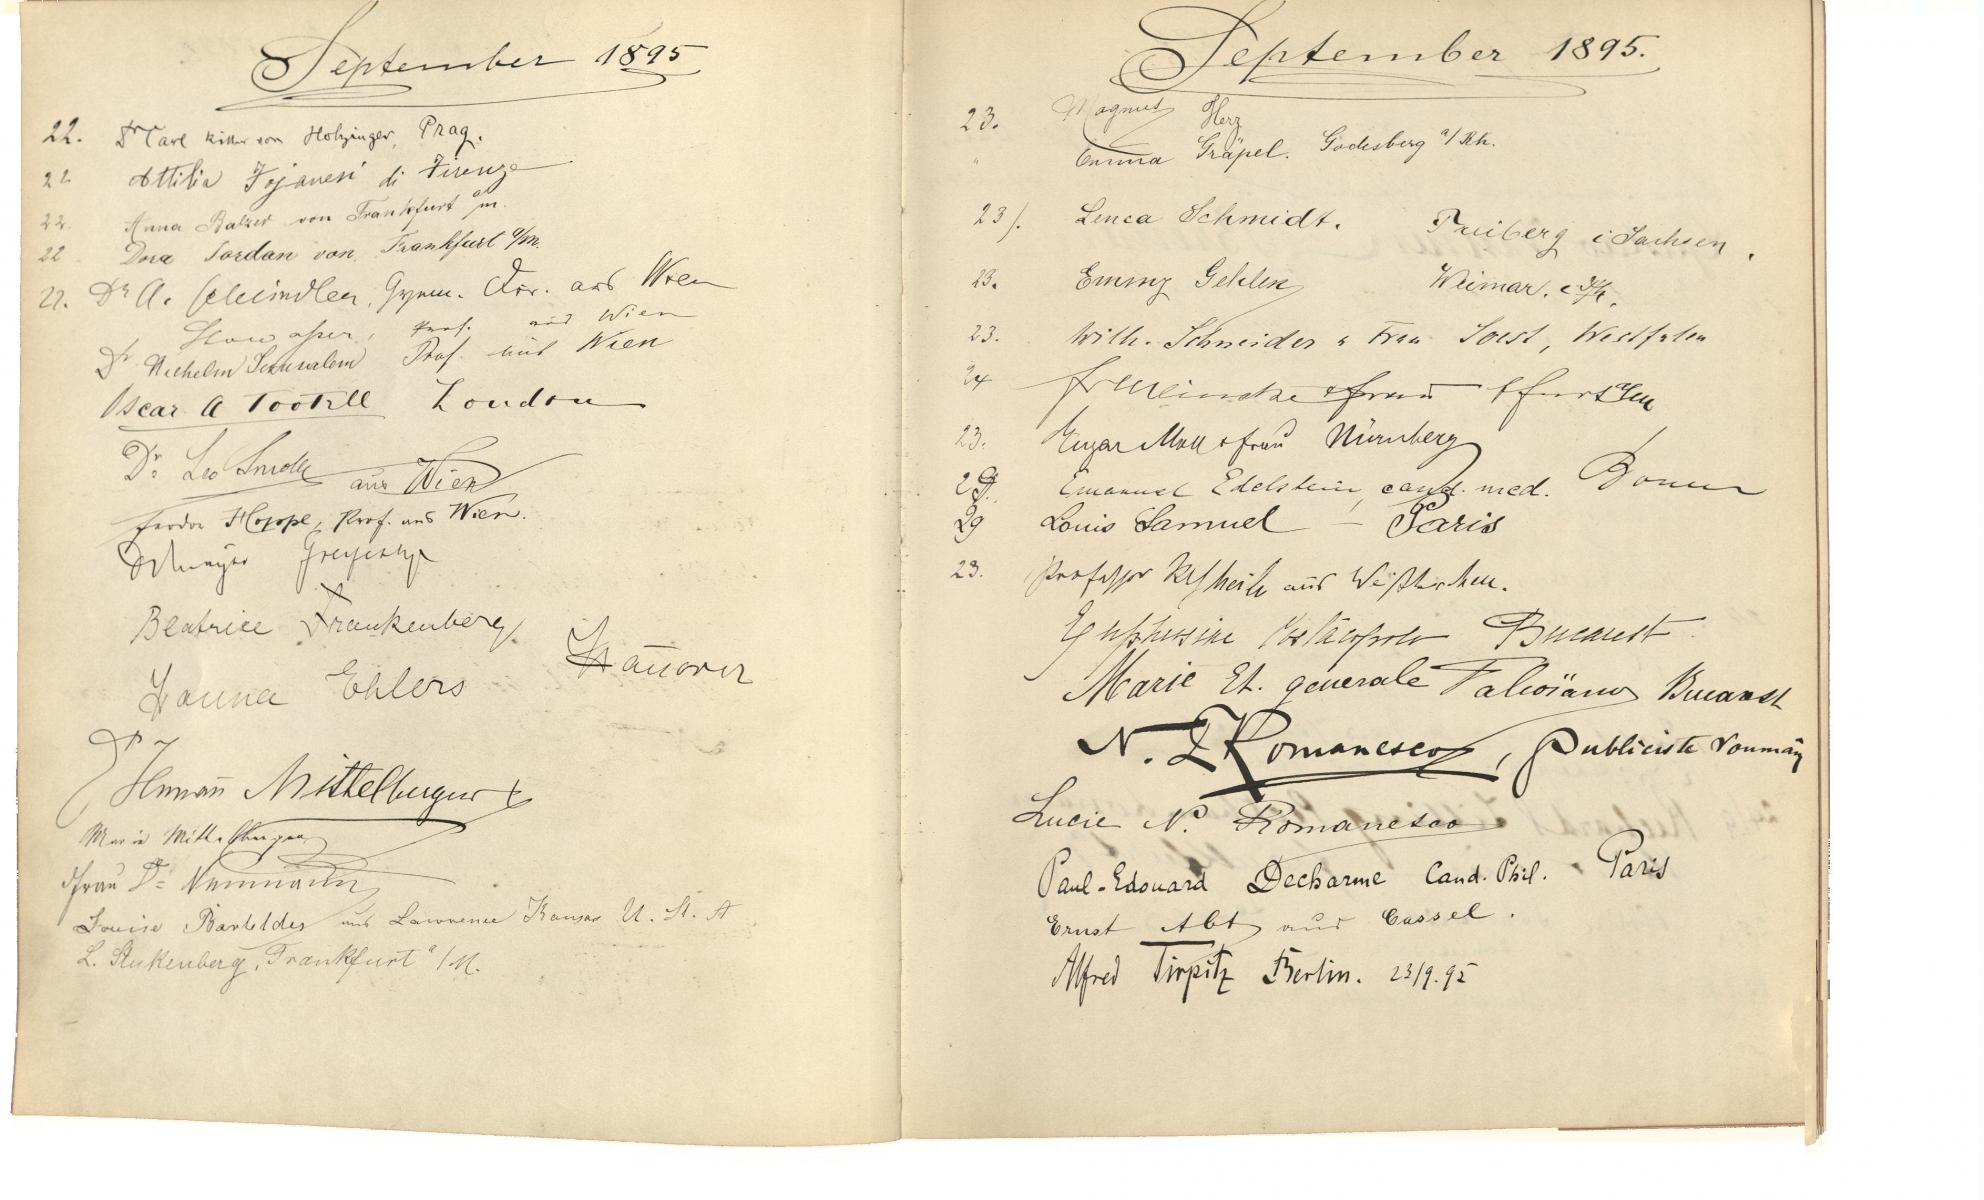 September 1895
22. Dr Carl Ritter von Holzinger, Prag.
22 Attilia di Firenze
22. Anna Balzer von Frankfurt a/m.
22 Dora Jordan von Frankfurt a/m.
22. Dr A. Scheindler, Gymn. Dir. aus Wien
Prof. aus Wien
Dr Wilhelm Jerusalem Prof. aus Wien
Oscar A Tootill London
Dr. Leo Smolle aus Wien
Feodor Hoppe, Prof. aus Wien.
Beatrice Frankenberg.
Hannover
Hanna Ehlers
Dr Hermann Mittelberger
Marie Mittelberger
Frau Dr. Neumann
Louise Barteldes aus Lawrence Kansas U. St. A
L. Stukenberg, Frankfurt a/M.
September 1895.
23. Magnus Herz
" Emma Gräpel. Godesberg a/Rh.
23/. Lenca Schmidt. Freiberg i Sachsen.
23. Emmy Gehlen Weimar.
23. Wilh. Schneider u Frau Soest, Westfalen
24 Frau
23. Moll & Frau Nürnberg
29. Emanuel Edelstein, cand. med. Bonn
29 Louis Samuel — Paris
23. Professor aus
Bucarest
Marie Et. generale Falcoïanu Bucarest
N. Romanesco, Publiciste roumain
Lucie N. Romanesco
Paul-Edouard Decharme Cand. Phil. Paris
Ernst Abt aus Cassel.
Alfred Tirpitz Berlin. 23/9.95